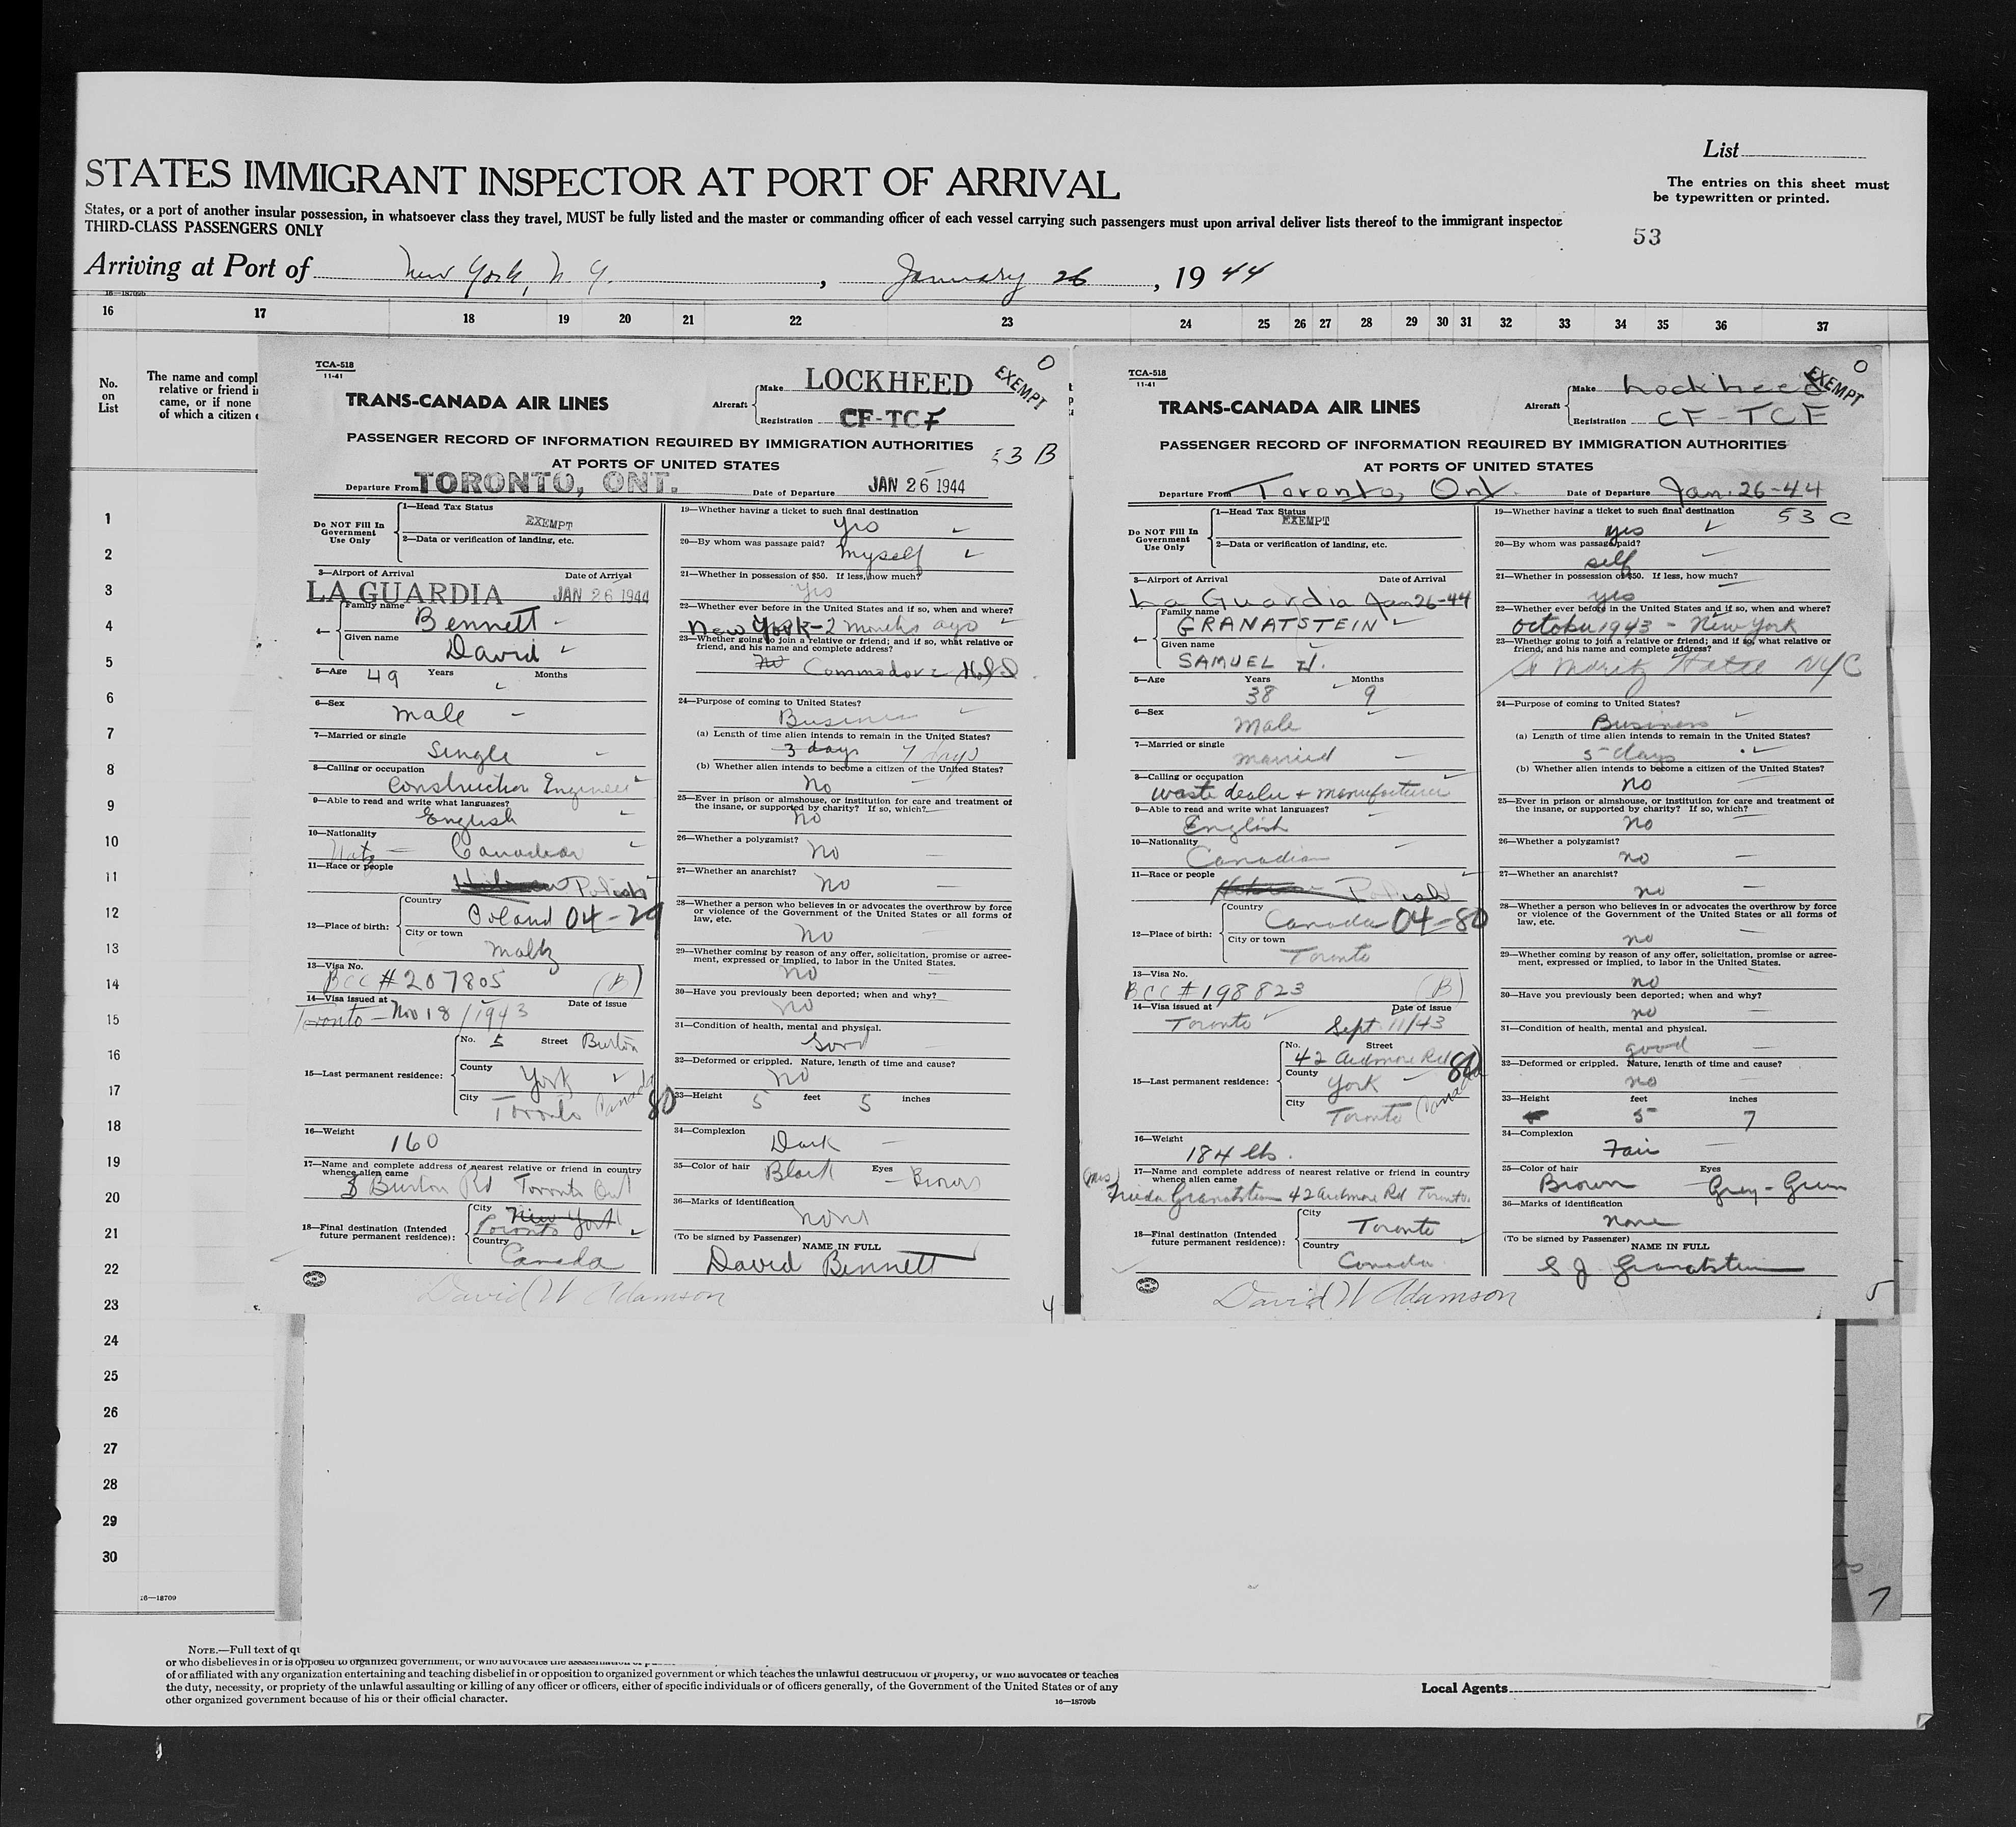 List
STATES IMMIGRANT INSPECTOR AT PORT OF ARRIVAL
The entries on this sheet must
be typewritten or printed.
States, or a port of another insular possession, in whatsoever class they travel, MUST be fully listed and the master or commanding officer of each vessel carrying such passengers must upon arrival deliver lists thereof to the immigrant inspector
THIRD-CLASS PASSENGERS ONLY
53
Arriving at Port of New York, N. Y. , January 26 , 19 44
16—18709b
16 17 18 19 20 21 22 23 24 25 26 27 28 29 30 31 32 33 34 35 36 37
No.
on
List
The name and compl
relative or friend i
came, or if none
of which a citizen
1
2
3
4
5
6
7
8
9
10
11
12
13
14
15
16
17
18
19
20
21
22
23
24
25
26
27
28
29
30
TCA-518
11-41
TRANS-CANADA AIR LINES
Aircraft
Make LOCKHEED
Registration CF-TCF
EXEMPT
0
PASSENGER RECORD OF INFORMATION REQUIRED BY IMMIGRATION AUTHORITIES
AT PORTS OF UNITED STATES
53 B
Departure From TORONTO, ONT. Date of Departure JAN 26 1944
Do NOT Fill In
Government
Use Only
1—Head Tax Status
EXEMPT
2—Data or verification of landing, etc.
3—Airport of Arrival Date of Arrival
LA GUARDIA JAN 26 1944
4— Family name Bennett
Given name David
5—Age 49 Years Months
6—Sex
Male
7—Married or single
Single
8—Calling or occupation
Construction Engineer
9—Able to read and write what languages?
English
10—Nationality
Canadian
11—Race or people
Polish
12—Place of birth:
Country
Poland 04-29
City or town
13—Visa No.
BCC #207805 (B)
14—Visa issued at Date of issue
Toronto - Nov 18/1943
15—Last permanent residence:
No. 5 Street Burton
County York
City Toronto Canada
80
16—Weight
160
17—Name and complete address of nearest relative or friend in country
whence alien came
5 Burton Rd Toronto Ont
18—Final destination (Intended
future permanent residence):
City New York
Toronto
Country
Canada
19—Whether having a ticket to such final destination
yes
20—By whom was passage paid?
myself
21—Whether in possession of $50. If less, how much?
yes
22—Whether ever before in the United States and if so, when and where?
New York - 2 months ago
23—Whether going to join a relative or friend; and if so, what relative or
friend, and his name and complete address?
No Commodore Hotel
24—Purpose of coming to United States?
Business
(a) Length of time alien intends to remain in the United States?
3 days 7 days
(b) Whether alien intends to become a citizen of the United States?
No
25—Ever in prison or almshouse, or institution for care and treatment of
the insane, or supported by charity? If so, which?
No
26—Whether a polygamist?
No
27—Whether an anarchist?
No
28—Whether a person who believes in or advocates the overthrow by force
or violence of the Government of the United States or all forms of
law, etc.
No
29—Whether coming by reason of any offer, solicitation, promise or agree-
ment, expressed or implied, to labor in the United States.
No
30—Have you previously been deported; when and why?
No
31—Condition of health, mental and physical.
Good
32—Deformed or crippled. Nature, length of time and cause?
No
33—Height 5 feet 5 inches
34—Complexion
Dark
35—Color of hair Black Eyes Brown
36—Marks of identification
none
(To be signed by Passenger) NAME IN FULL
David Bennett
David W Adamson
4
TCA-518
11-41
TRANS-CANADA AIR LINES
Aircraft
Make Lockheed
Registration CF-TCF
EXEMPT
0
PASSENGER RECORD OF INFORMATION REQUIRED BY IMMIGRATION AUTHORITIES
AT PORTS OF UNITED STATES
Departure From Toronto, Ont. Date of Departure Jan. 26-44
53 C
Do NOT Fill In
Government
Use Only
1—Head Tax Status
EXEMPT
2—Data or verification of landing, etc.
3—Airport of Arrival Date of Arrival
La Guardia Jan 26-44
4— Family name
GRANATSTEIN
Given name
SAMUEL J.
5—Age Years 38 Months 9
6—Sex
Male
7—Married or single
married
8—Calling or occupation
waste dealer + manufacturer
9—Able to read and write what languages?
English
10—Nationality
Canadian
11—Race or people
Polish
12—Place of birth:
Country
Canada 04-80
City or town
Toronto
13—Visa No.
BCC #198823 (B)
14—Visa issued at Date of issue
Toronto Sept. 11/43
15—Last permanent residence:
No. Street
42 Ardmore Rd
80
County
York
City
Toronto Canada
16—Weight
184 lbs.
17—Name and complete address of nearest relative or friend in country
whence alien came
(Mrs) Granatstein 42 Ardmore Rd Toronto
18—Final destination (Intended
future permanent residence):
City
Toronto
Country
Canada
19—Whether having a ticket to such final destination
yes
20—By whom was passage paid?
self
21—Whether in possession of $50. If less, how much?
yes
22—Whether ever before in the United States and if so, when and where?
October 1943 - New York
23—Whether going to join a relative or friend; and if so, what relative or
friend, and his name and complete address?
St Moritz Hotel NYC
24—Purpose of coming to United States?
Business
(a) Length of time alien intends to remain in the United States?
5 days
(b) Whether alien intends to become a citizen of the United States?
No
25—Ever in prison or almshouse, or institution for care and treatment of
the insane, or supported by charity? If so, which?
no
26—Whether a polygamist?
no
27—Whether an anarchist?
no
28—Whether a person who believes in or advocates the overthrow by force
or violence of the Government of the United States or all forms of
law, etc.
no
29—Whether coming by reason of any offer, solicitation, promise or agree-
ment, expressed or implied, to labor in the United States.
no
30—Have you previously been deported; when and why?
no
31—Condition of health, mental and physical.
good
32—Deformed or crippled. Nature, length of time and cause?
no
33—Height feet inches
5 7
34—Complexion
Fair
35—Color of hair Eyes
Brown Grey-Green
36—Marks of identification
none
(To be signed by Passenger) NAME IN FULL
S J Granatstein
David W Adamson
5
7
16—18709
NOTE.—Full text of qu
or who disbelieves in or is opposed to organized government, or who advocates the assassination of
of or affiliated with any organization entertaining and teaching disbelief in or opposition to organized government or which teaches the unlawful destruction of property, or who advocates or teaches
the duty, necessity, or propriety of the unlawful assaulting or killing of any officer or officers, either of specific individuals or of officers generally, of the Government of the United States or of any
other organized government because of his or their official character.
16—18709b
Local Agents